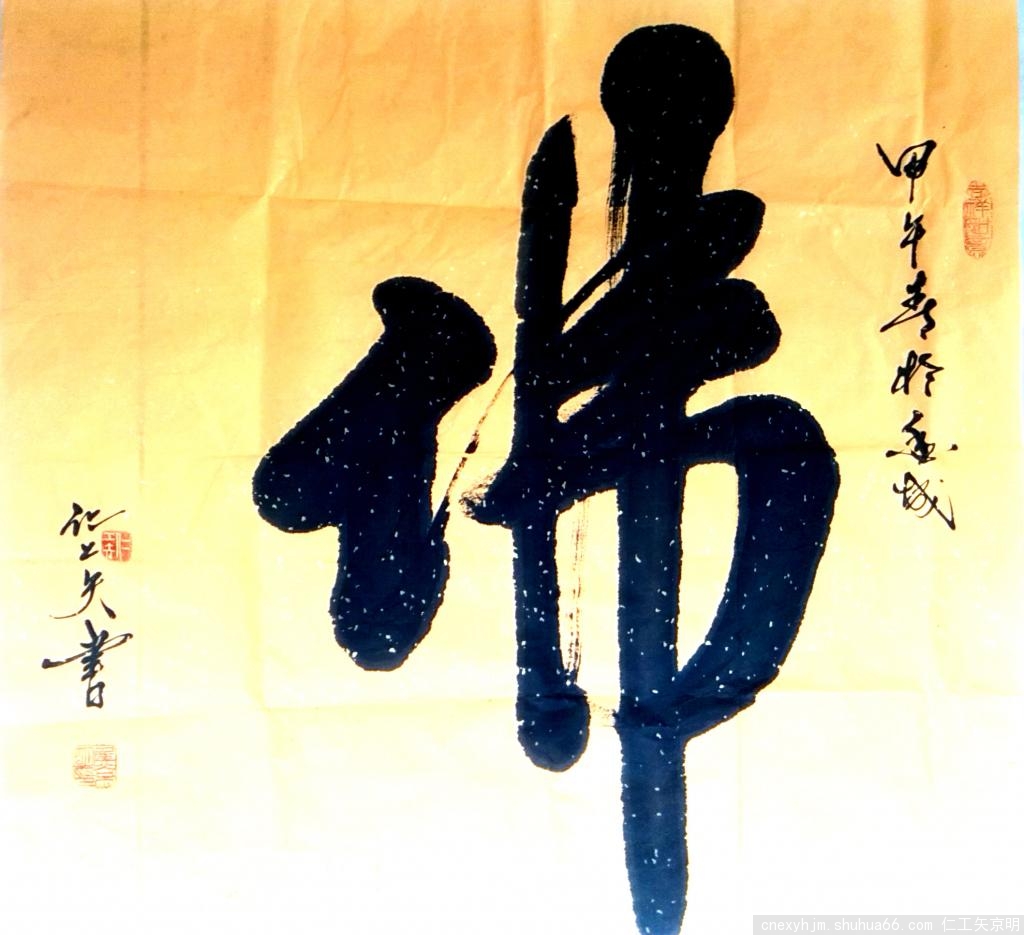 吉祥如意
甲午春於城
佛
仁工矢書
cnexyhjm.shuhua66.com 仁工矢京明